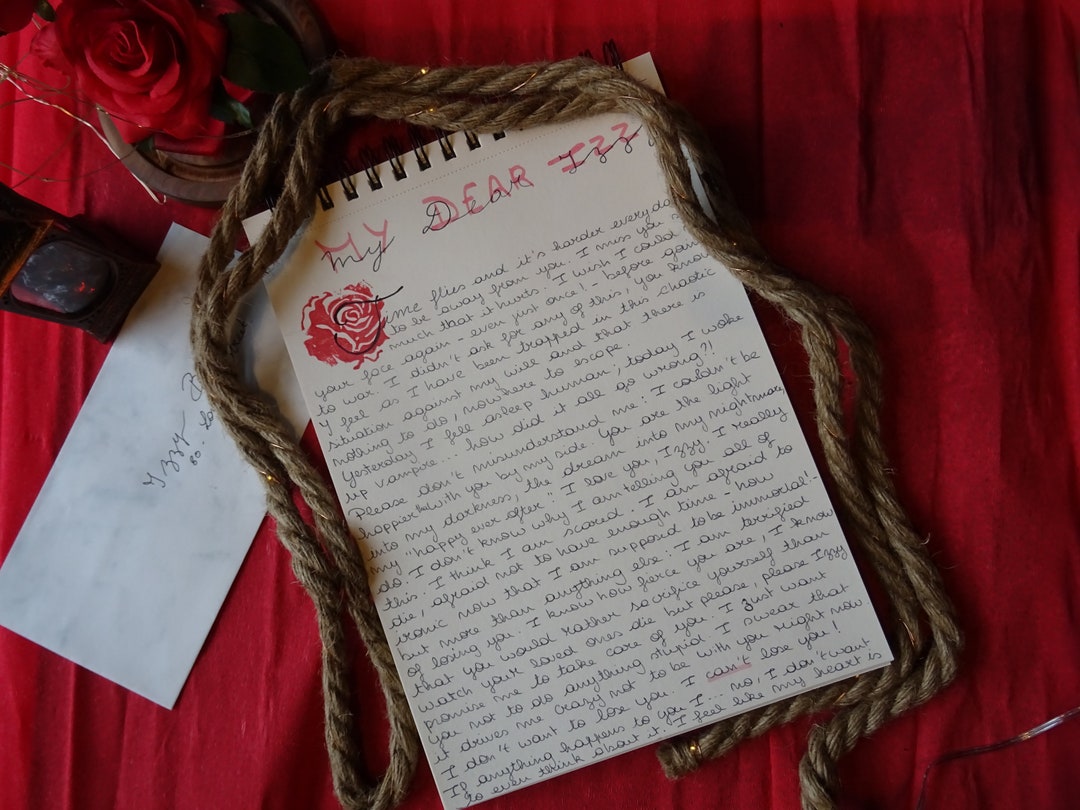 MY DEAR IZZ
My Dear Izzy
Time flies and it's harder everyda
to be away from you. I miss you s
much that it hurts - I wish I could
your face again - even just once! - before goin
to war. I didn't ask for any of this, you know
I feel as I have been trapped in this chaotic
situation against my will and that there is
nothing to do, nowhere to escape.
Yesterday I fell asleep human; today I woke
up vampire... how did it all go wrong?!
Please don't misunderstand me: I couldn't be
happier than with you by my side. You are the light
into my darkness, the dream into my nightmare,
my "happy ever after". I love you, Izzy. I really
do. I don't know why I am telling you all of
this. I think I am scared. I am afraid to
die, afraid not to have enough time - how
ironic now that I am supposed to be immortal! -
but more than anything else: I am terrified
of losing you. I know how fierce you are, I know
that you would rather sacrifice yourself than
watch your loved ones die but please, please Izzy
promise me to take care of you. I just want
you not to do anything stupid. I swear that
it drives me crazy not to be with you right now
I don't want to lose you. I can't lose you!
If anything happens to you I... no, I don't want
to even think about it. I feel like my heart is
Izzy